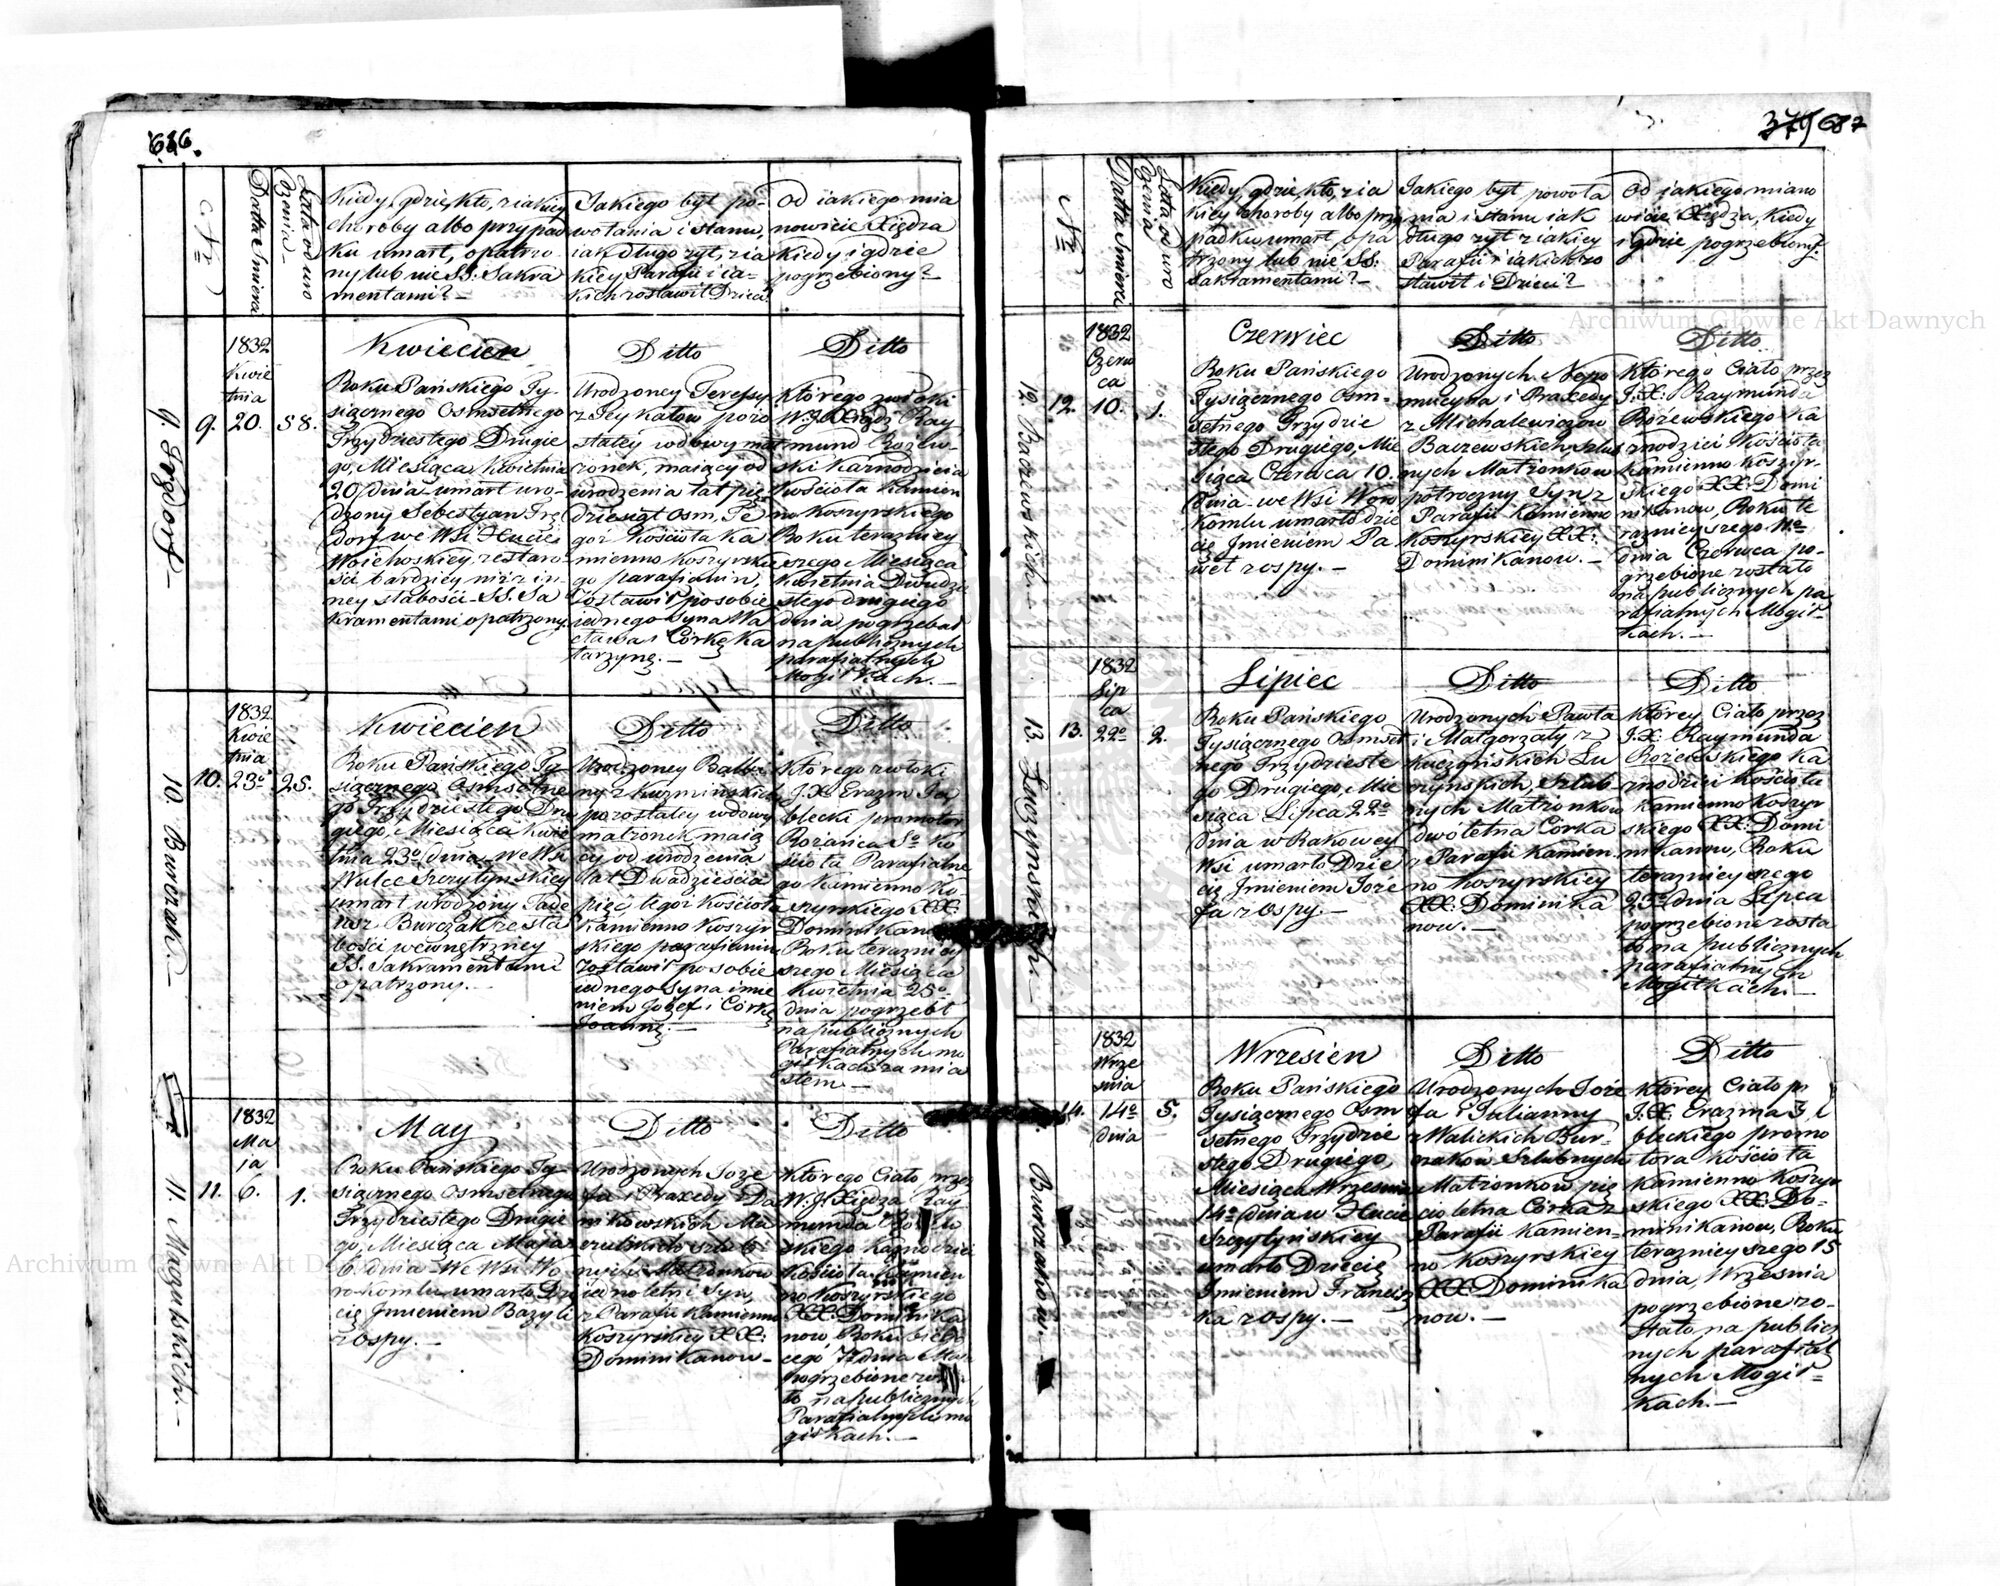 686.
Nr
Datta Śmierci
Latta od uro
dzenia
Kiedy, gdzie, kto, z iakiey
choroby albo przypad
ku umarł, opatrzo
ny lub nie SS. Sakra
mentami? —
Jakiego był po-
wołania i stanu,
iak długo żył, z ia
kiey Parafii i ia-
kich zostawił Dzieci
Od iakiego mia
nowicie Xiędza
kiedy i gdzie
pogrzebiony?
9.
1832
Kwie
tnia
20.
58.
Kwiecien
Roku Pańskiego Ty-
siącznego Osmsetnego
Trzydziestego Drugie
go, Miesiąca Kwietnia
20 dnia umarł uro-
dzony Sebestyan
we Wsi Hucie
Woiehoskiey ze staro
ści bardziey niż z in-
ney słabości SS. Sa
kramentami opatrzony.
Ditto
Urodzoney Teressy
pozo
stałey wdowy mał
żonek, maiący od
urodzenia lat pięć
dziesiąt osm, Te
goż Kościoła Ka
mienno Koszyrskie
go parafianin,
zostawił po sobie
iednego Syna Wa
cława i Córkę Ka
tarzynę. —
Ditto
Którego zwłoki
W. J. Xiądz Ray
mund Rożew-
ski Kaznodzieia
Kościoła Kamien
no Koszyrskiego
Roku terazniey
szego Miesiąca
Kwietnia Dwudzie
stego drugiego
dnia pogrzebał
na publicznych
parafialnych
Mogiłkach. —
10. Burczak. —
10.
1832
Kwie
tnia
23o
25.
Kwiecien
Roku Pańskiego Ty-
siącznego Osmsetne
go Trzydziestego Dru
giego, Miesiąca Kwie
tnia 23o dnia we Wsi
Wulce Szczytynskiey
umarł urodzony Tade
usz Burczak ze sła
bości wewnętrzney
SS. Sakramentami
opatrzony. —
Ditto
Urodzoney Balbi
ny z Kuzminskich
pozostałey wdowy
małżonek maią
cy od urodzenia
lat Dwadzieścia
pięć tegoż Kościoła
Kamienno Koszyr
skiego parafianin
zostawił po sobie
iednego Syna imie
niem Jozef i Córkę
Joannę. —
Ditto
Którego zwłoki
J. X. Erazm Ja
błecki promotor
Rożańca So Ko
ścioła Parafialne
go Kamienno Ko-
szyrskiego XX.
Dominikanow
Roku terazniey
szego Miesiąca
Kwietnia 25o
dnia pogrzebł
na publicznych
Parafialnych mo
giłkach za mia
stem —
11.
1832
Ma
ia
6.
1.
May
Roku Pańskiego Ty-
siącznego Osmsetnego
Trzydziestego Drugie
go, Miesiąca Maja
6. dnia we Wsi Wo
rokomlu umarło Dzie
cię Jmieniem Bazyli
z ospy. —
Ditto
Urodzonych Joze
fa i Praxedy z Da
nikowskich
szlub
nych Małżonkow
iednoletni Syn,
z Parafii Kamienno
Koszyrskiey XX:
Dominikanow —
Ditto
Którego Ciało przez
W. J. Xiędza Ray
munda Rożew
skiego Kaznodziei
Kościoła Kamien
no Koszyrskiego
XX. Dominika
now, Roku bieżą
cego 7 dnia Maia
pogrzebione zosta
ło na publicznych
Parafialnych mo
giłkach. —
379 687
Nr
Datta Śmierci
Latta od uro
dzenia
Kiedy, gdzie, kto, z ia
kiey choroby albo przy
padku umarł, opa
trzony lub nie SS:
Sakramentami? —
Jakiego był powoła
nia i stanu iak
długo żył z iakiey
Parafii i iakich zo
stawił i Dzieci?
Od iakiego miano
wicie Xiędza, kiedy
i gdzie pogrzebiony?
12.
1832
Czerw
ca
10.
1.
Czerwiec
Roku Pańskiego
Tysiącznego Osm-
setnego Trzydzie
stego Drugiego, Mie
siąca Czerwca 10.
dnia we Wsi Woro
komlu umarło dzie
cię Jmieniem Pa
weł z ospy. —
Ditto
Urodzonych Nepo
mucyna i Praxedy
z Michalewiczow
Baczewskich, szlub
nych Małżonkow
połroczny Syn z
Parafii Kamienno
Koszyrskiey XX:
Dominikanow. —
Ditto
Którego Ciało przez
J. X: Raymunda
Rożewskiego Ka
znodziei Kościoła
Kamienno Koszyr-
skiego XX: Domi
nikanow, Roku te
razniey szego 11o
dnia Czerwca po-
grzebione zostało
na publicznych pa
rafialnych Mogił-
kach. —
13. Luczynskich. —
13.
1832
Lip
ca
22o
2.
Lipiec
Roku Pańskiego
Tysiącznego Osmset
nego Trzydzieste
go Drugiego, Mie
siąca Lipca 22o
dnia w Rakowey
Wsi umarło Dzie
cię Jmieniem Joze
fa z Ospy. —
Ditto
Urodzonych Pawła
i Małgorzaty z
Kuczynskich Lu
czynskich, szlub
nych Małżonkow
dwóletna Córka
z Parafii Kamien-
no Koszyrskiey
XX: Dominika
now. —
Ditto
Którey Ciało przez
J. X: Raymunda
Rożewskiego Ka
znodziei Kościoła
Kamienno Koszyr
skiego XX: Domi
nikanow, Roku
terazniey szego
23o dnia Lipca
pogrzebione zosta
ło na publicznych
parafialnych
Mogiłkach. —
14. Burczakow. —
1832
Wrze
snia
14o
dnia
5.
Wrzesien
Roku Pańskiego
Tysiącznego Osm
setnego Trzydzie
stego Drugiego,
Miesiąca Wrzesnia
14o dnia w Hucie
Szczytyńskiey
umarło Dziecię
Jmieniem Francisz
ka z ospy. —
Ditto
Urodzonych Joze
fa i Julianny
z Walickich Bur-
czakow Szlubnych
Małżonkow pię
cio letna Córka z
Parafii Kamien-
no Koszyrskiey
XX Dominika
now. —
Ditto
Którey Ciało
J. X. Erazma Ja
błeckiego promo
tora Kościoła
Kamienno Koszyr
skiego XX: Do-
minikanow, Roku
terazniey szego 15
dnia, Wrzesnia
pogrzebione zo-
stało na publicz
nych parafial
nych Mogił-
kach. —
Archiwum Główne Akt Dawnych
Archiwum Główne Akt Dawnych